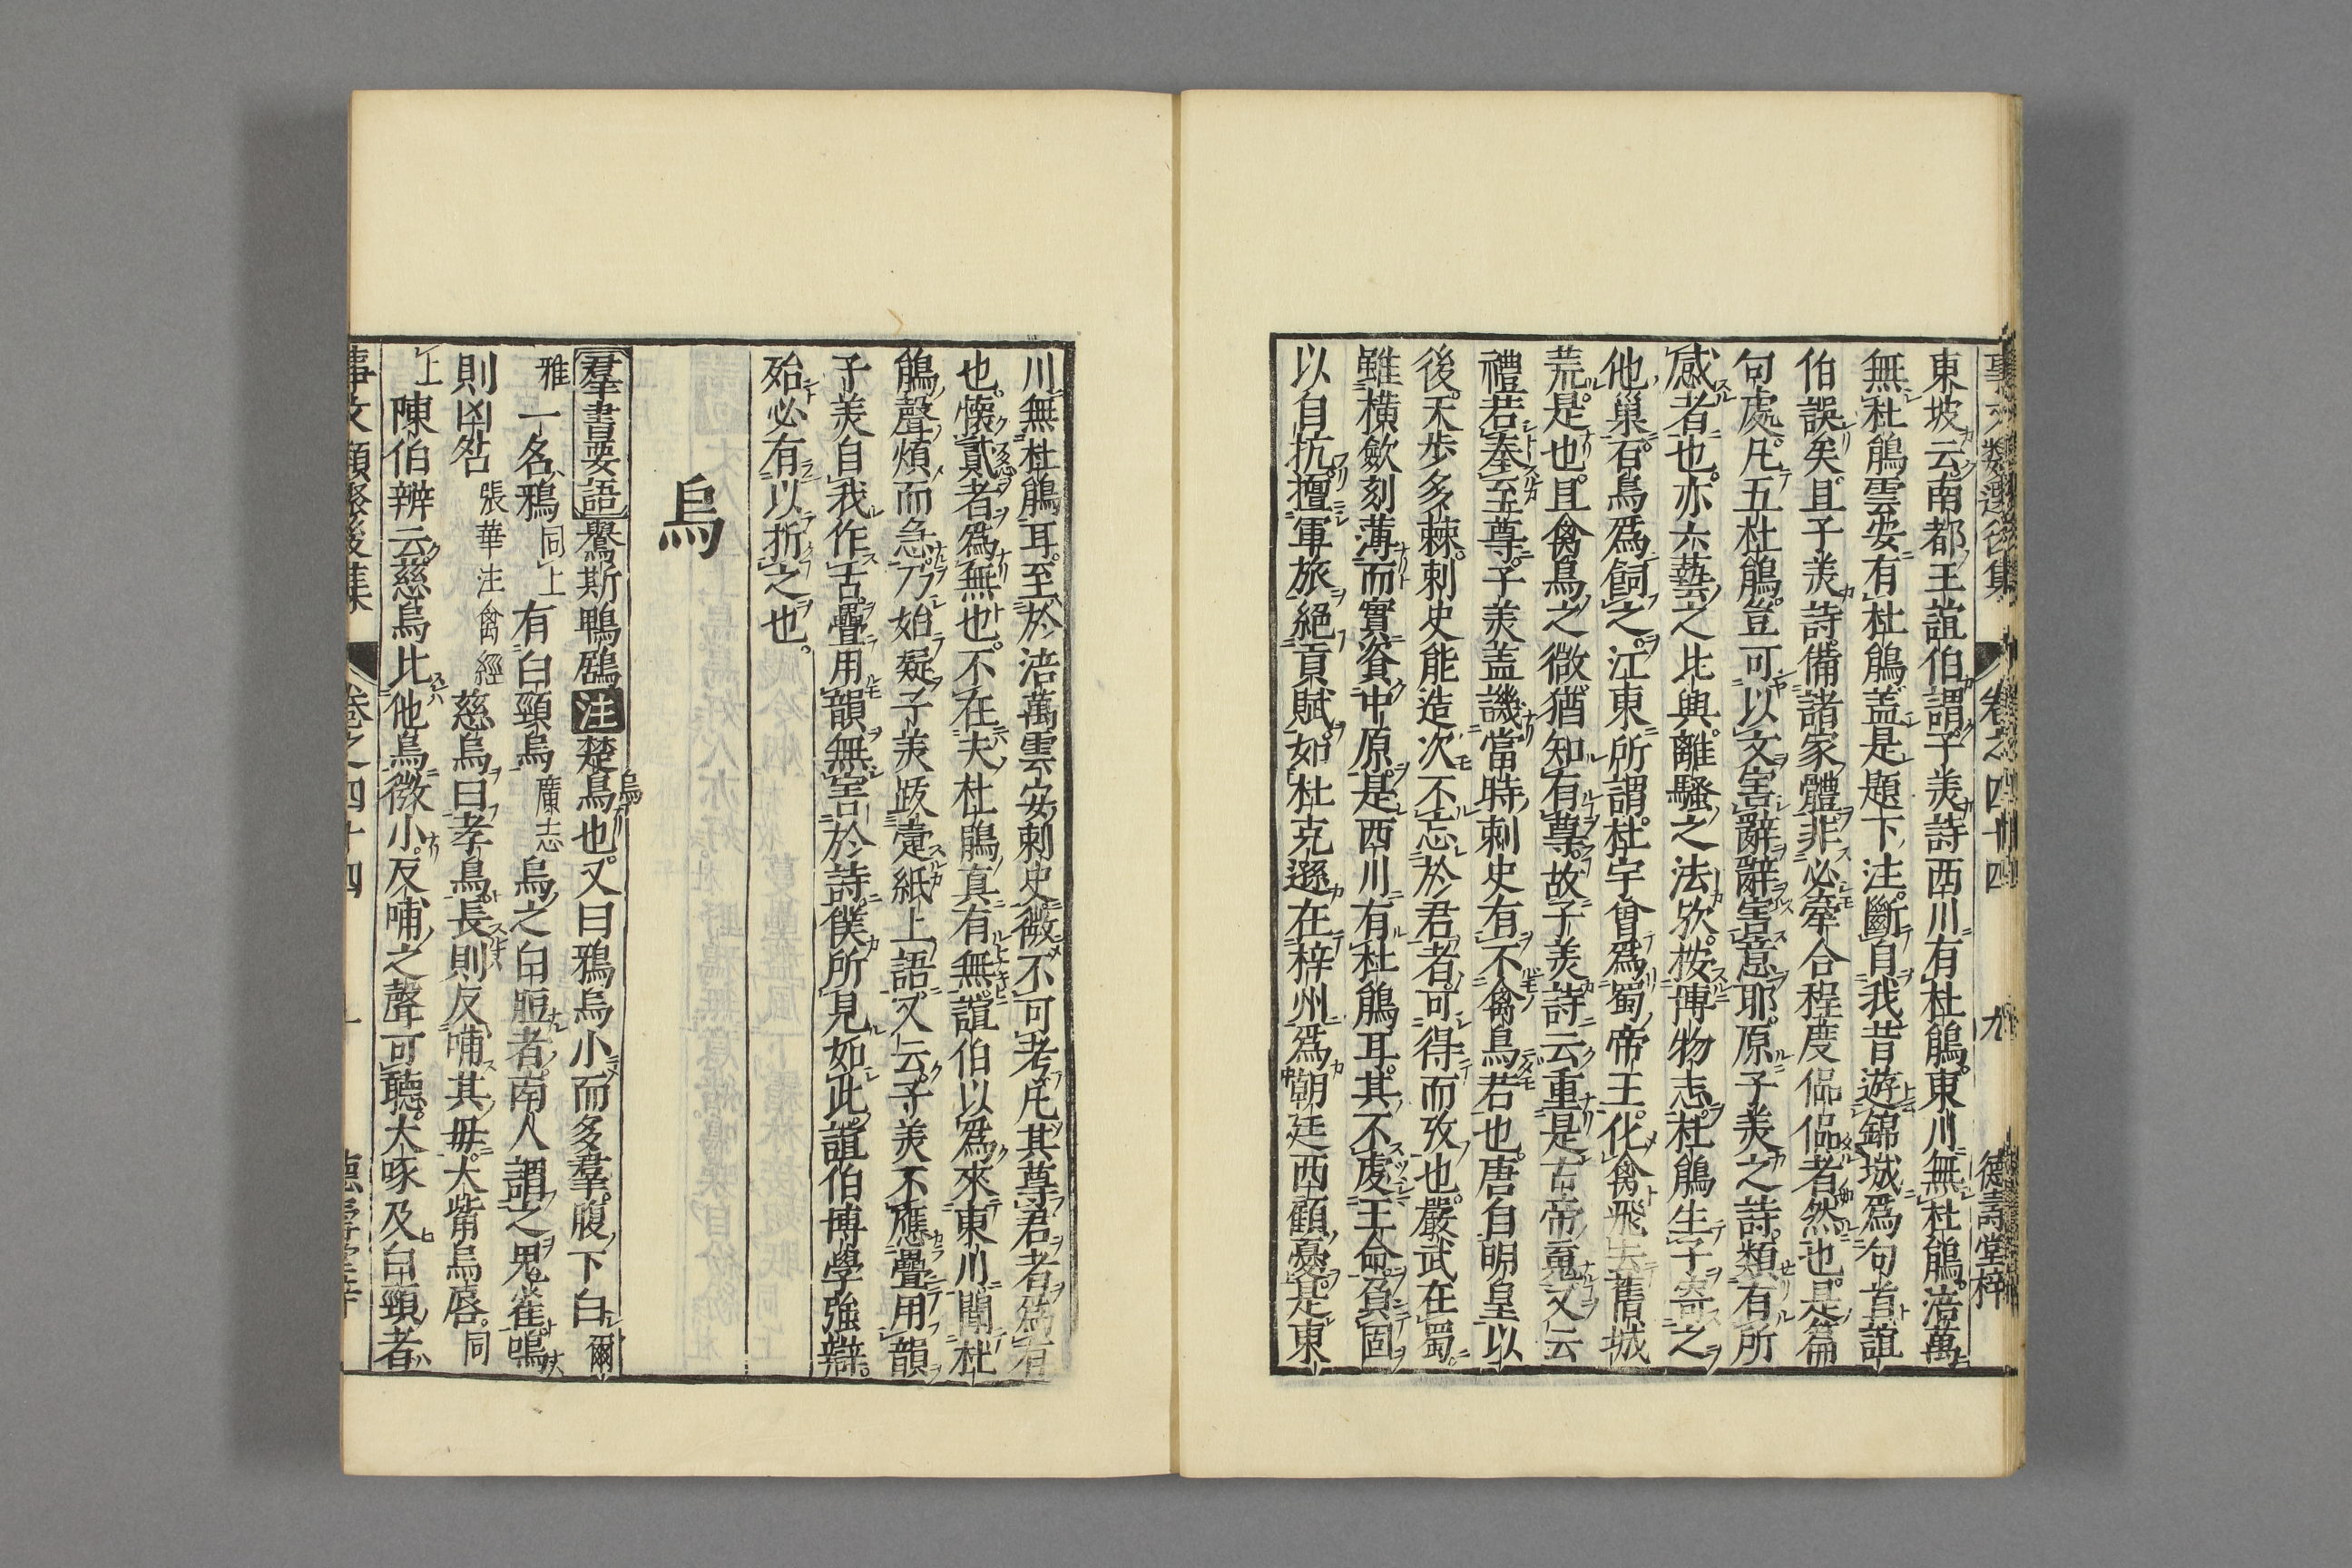 卷之四十四 九 德壽堂梓
東坡云南都王誼伯謂子羙詩西川有杜鵑東川無杜鵑涪萬
無杜鵑雲安有杜鵑盖是題下注斷自我昔遊錦城爲句首誼
伯誤矣且子羙詩備諸家體非必牽合程度侃侃者然也是篇
句處凡五杜鵑豈可以文害辭辭害意耶原子羙之詩類有所
感者也亦六藝之比興離騷之法欤按博物志杜鵑生子寄之
他巢百鳥爲飼之江東所謂杜宇曾爲蜀帝王化禽飛去舊城
荒是也且禽鳥之微猶知有尊故子羙詩云重是古帝䰟又云
禮若奉至尊子羙盖譏當時刺史有不禽鳥若也唐自明皇以
後天步多棘刺史能造次不忘於君者可得而攷也嚴武在蜀
雖橫歛刻薄而實資中原是西川有杜鵑耳其不虔王命負固
以自抗擅軍旅絕貢賦如杜克遜在梓州爲朝廷西顧憂是東
川無杜鵑耳至於涪萬雲安刺史微不可考凡其尊君者爲有
也懷貳者爲無也不在夫杜鵑真有無誼伯以爲來東川聞杜
鵑聲煩而急乃始疑子羙跋疐紙上語又云子羙不應疊用韻
子羙自我作古疊用韻無害於詩僕所見如此誼伯博學強辯
殆必有以折之也
烏
羣書要語鸒斯鵯鶋注楚烏也又曰鴉烏小而多羣腹下白爾
雅一名鴉同上有白頸烏廣志烏之白脰者南人謂之鬼雀鳴
則凶咎張華注禽經慈烏曰孝鳥長則反哺其毋大觜烏唇同
上陳伯辨云慈烏比他烏微小反哺之聲可聽大啄及白頸者
事文類聚後集 卷之四十四